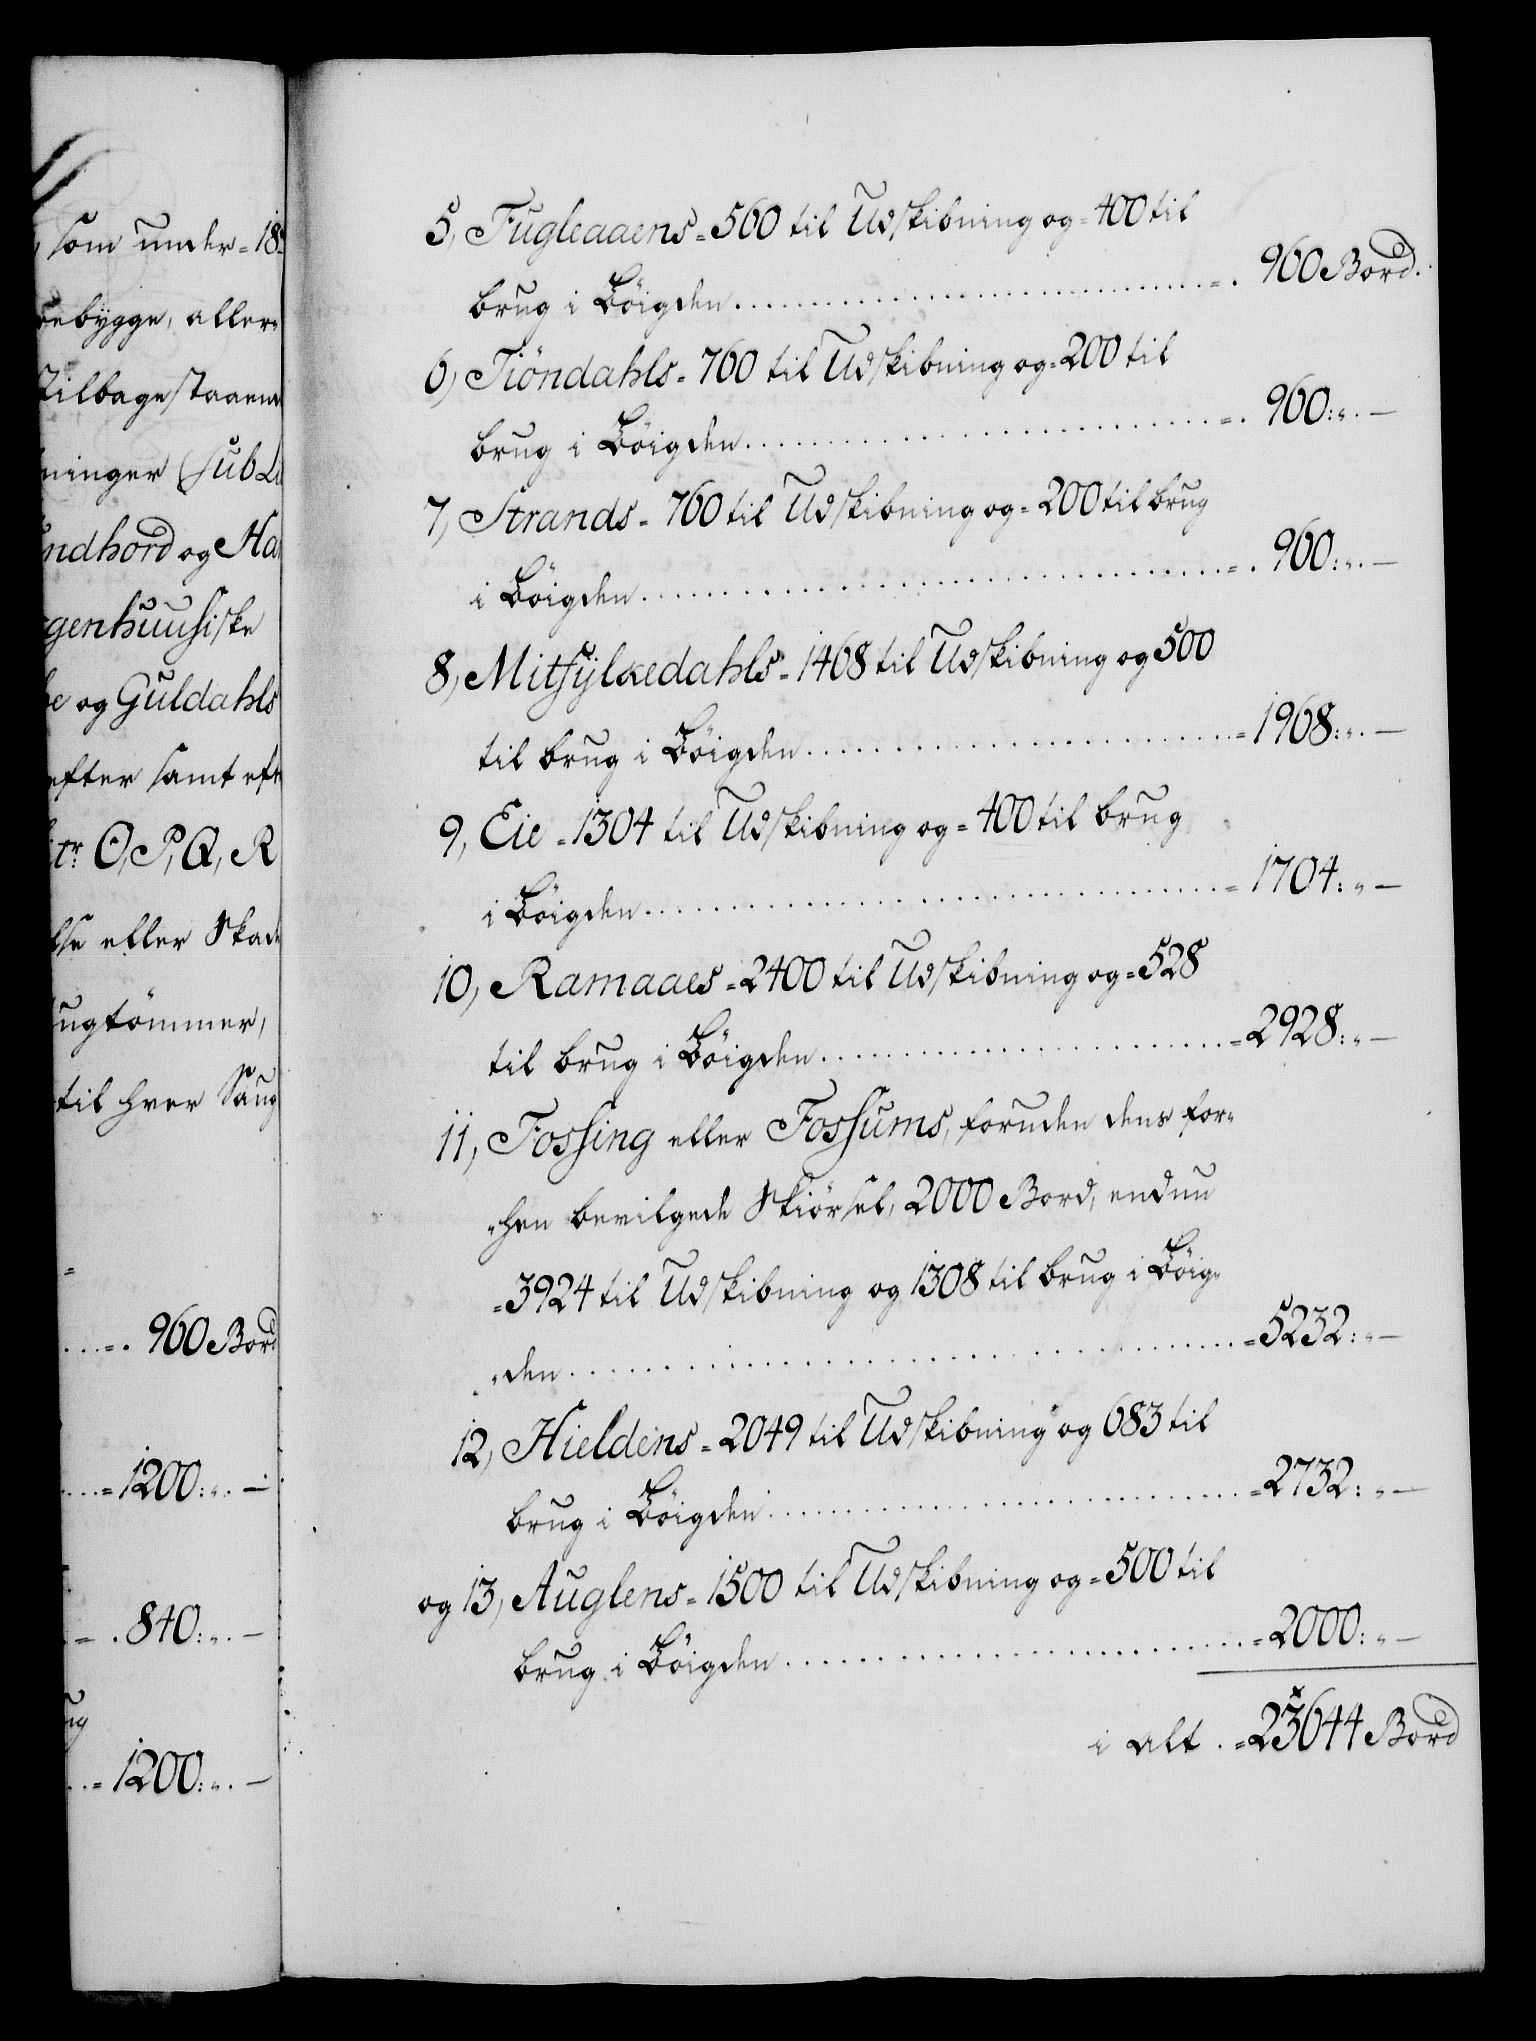 som under 18
bebygge, aller-
tilbagestaaende
ninger Sub Li
undhord og Ha
genhuusiske
be og Guldahls
efter samt efr
Litr: O, P, Q, R
lse eller Skade
augtömmer,
til hver Saug
=
....=. 960 Bord
....=1200:„.—
.=.840:„.—
ug
..=1200:„.—
5, Fugleaaens=560 til Udskibning og=400 til
brug i Böigden..............................=. 960 Bord.
6, Tiöndahls=760 til Udskibning og=200 til
brug i Böigden..............................=. 960:„.—
7, Strands=760 til Udskibning og=200 til brug
i Böigden..............................=. 960:„.—
8, Mitsylkedahls=1468 til Udskibning og 500
til brug i Böigden..............................=1968:„.—
9, Eie=1304 til Udskibning og=400 til brug
i Böigden..............................=1704:„—
10, Ramaaes=2400 til Udskibning og=528
til brug i Böigden..............................=2928:„—
11, Fossing eller Fossums, foruden dens for-
„hen bevilgede Skiörsel, 2000 Bord, endnu
=3924 til Udskibning og 1308 til brug i Böig-
„den..............................=5232:„—
12, Hieldens=2049 til Udskibning og 683 til
brug i Böigden..............................=2732:„—
og 13, Auglens=1500 til Udskibning og=500 til
brug i Böigden..............................=2000:„—
i alt.=23644 Bord